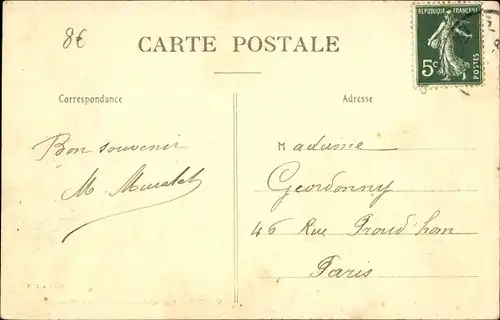 8€
CARTE POSTALE
REPUBLIQUE FRANÇAISE
5c
POSTES
Correspondance
Adresse
Bon souvenir
M. Muratet
Madame
Geordonny
46 Rue Proud'hom
Paris